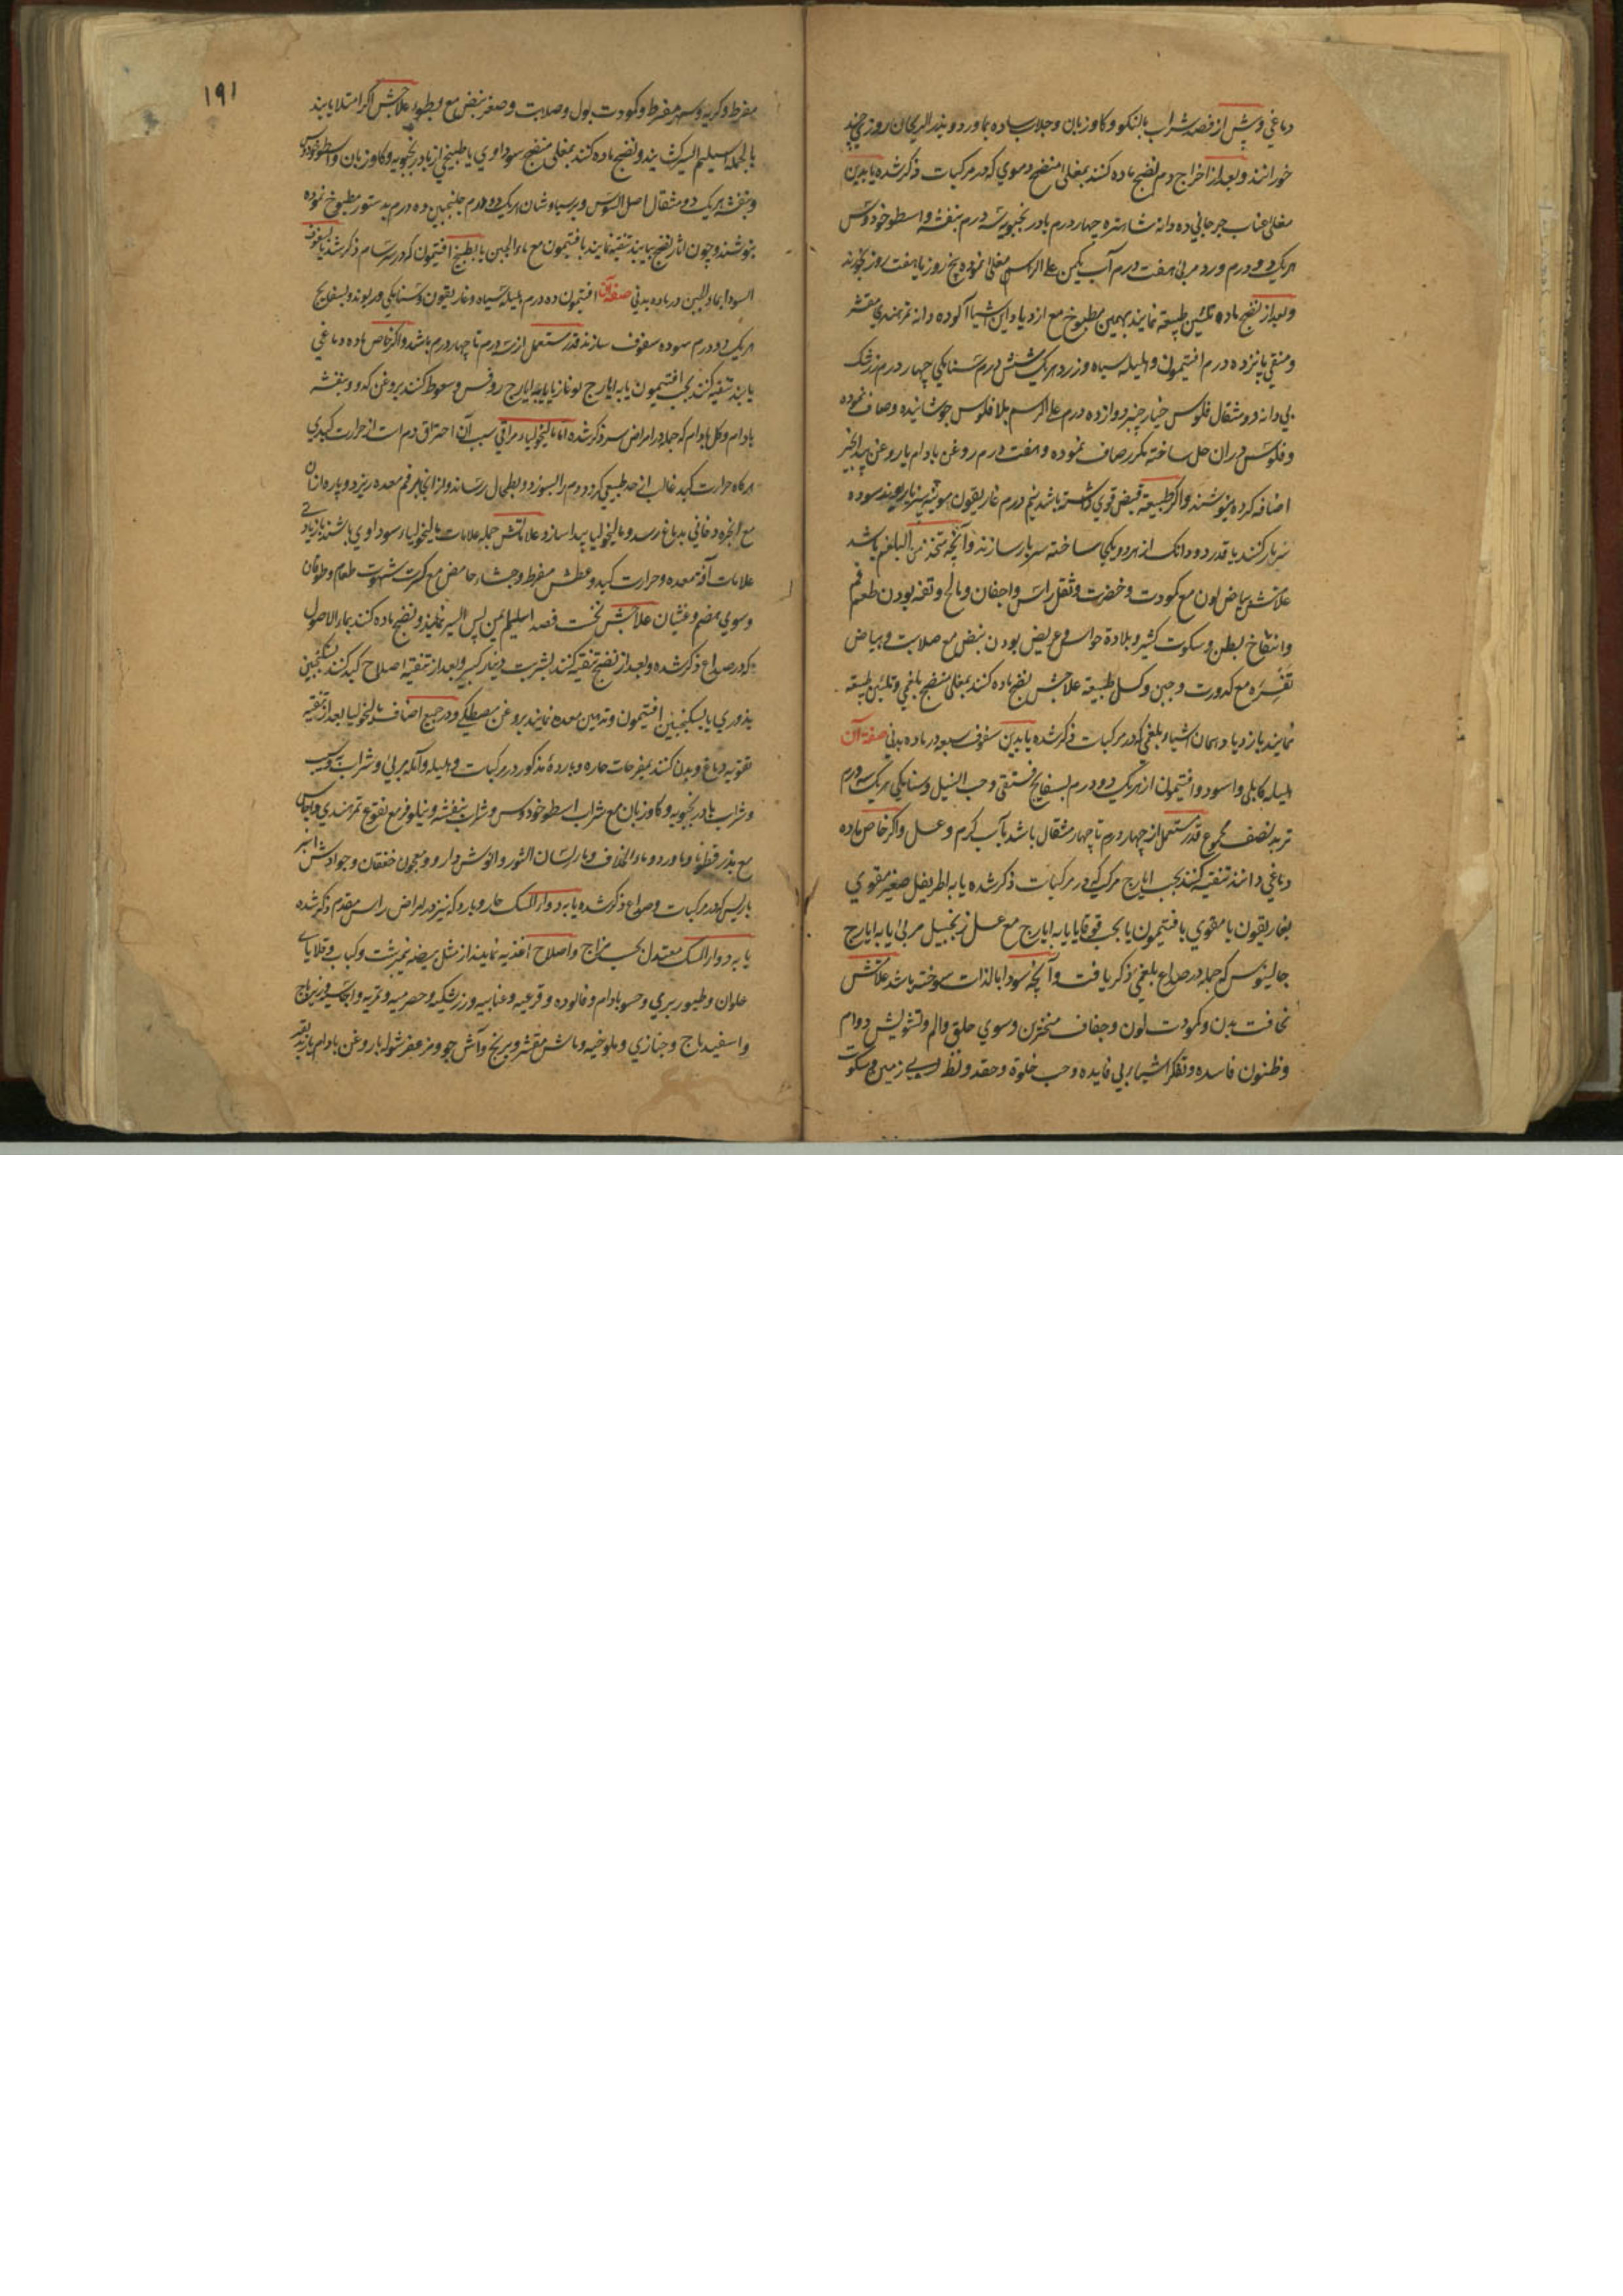 دماغي و پش از فصد شراب بالنكو و كاوزبان و جلاب ساده بماورد و بذر الريحان روزي چند
خورانند و بعد از اخراج دم نضج ماده كنند بمغلي منضج دموي كه در مركبات ذكر شده يا بدين
مغلي عناب جرجاني ده دانه شاهتره چهار درم بادرنجبويه سه درم بنفشه و اسطوخودوس
هريك دو درم ورد مربي هفت درم آب يكمن علي الرسم مغلي نموده پنج روز يا هفت روز خورند
و بعد از نضج ماده تليين طبيعة نمايند بهمين مطبوخ مع ازدياد اين اشيا آلو ده دانه تمرهندي مقشر
و منقي پانزده درم افتيمون و هليله سياه و زرد هريك شش درم سنا مكي چهار درم زرشك
بي دانه دو مثقال فلوس خيارچنبر دوازده درم علي الرسم بلا فلوس جوشانيده و صاف نموده
و فلوس در ان حل ساخته مكرر صاف نموده و هفت درم روغن بادام يا روغن بيدانجير
اضافه كرده بنوشند و اكر طبيعة قبض قوي داشته باشد نيم درم غاريقون مويينه بيز يا ريوند سوده
سربار كنند يا قدر دو دانك از هردو يكجا ساخته سربار سازند و آنچه متخذ من البلغم باشد
علامتش بياض لون مع كمودت و خضرت و ثقل راس و اجفان و مالح و تفه بودن طعم فم
و انتفاخ بطن و سكوت كثير و بلادة حواس و عريض بودن نبض مع صلابت و بياض
تفسره مع كدورت و جبن و كسل طبيعة علاجش نضج ماده كنند بمغلي منضج بلغمي و تليين طبيعة
نمايند بازدياد همان اشياء بلغمي كه در مركبات ذكر شده يا بدين سفوف سبعه در ماده بدني صفة آن
هليله كابلي و اسود و افتيمون از هريك دو درم بسفايج فستقي و حب النيل و سنا مكي هريك سه درم
تربد نصف مجموع قدر مستعمل از چهار درم تا چهار مثقال باشد بآب كرم و عسل و اكر خاص ماده
دماغي دانند تنقيه كنند بحب ايارج مركب كه در مركبات ذكر شده يا به اطريفل صغير مقوي
بغاريقون يا مقوي بافتيمون يا بحب قوقايا يا به ايارج مع عسل زنجبيل مربي يا به ايارج
جالينوس كه جمله در صداع بلغمي ذكر يافت و آنچه سودا بالذات سوخته باشد علامتش
نحافت بدن و كمودت لون و جفاف منخرين و سوي حلق و الم و تشويش دوام
و ظنون فاسده و تفكر اشياء بي فايده و حب خلوة و حقد و نظر بسوي زمين و سكوت
١٩١
مفرط و كريه و سهر مفرط و كمودت بول و صلابت و صغر نبض مع بطوء علاجش اكر امتلا يابند
بالجمله اسيليم ايسر كشايند و نضج ماده كنند بمغلي منضج سوداوي يا طبيخي از بادرنجبويه و كاوزبان و اسطوخودوس
و بنفشه هريك دو مثقال اصل السوس و پرسياوشان هريك دو درم جلنجبين ده درم بدستور مطبوخ نموده
بنوشند و چون اثار نضج بيايند تنقيه نمايند بافتيمون مع ماء الجبن يا بطبخ افتيمون كه در سرسام ذكر شد يا بسفوف
السودا بماء الجبن در ماده بدني صفة آن افتيمون ده درم هليله سياه و غاريقون و سنا مكي و ريوند و بسفايج
هريك دو درم سوده سفوف سازند قدر مستعمل از سه درم تا چهار درم باشد و اكر خاص ماده دماغي
يابند تنقيه كنند بحب افتيمون يا به ايارج لوغاذيا يا به ايارج روفس و سعوط كنند بروغن كدو و بنفشه
بادام و كل بادام كه جمله در امراض سر ذكر شده اما ماليخوليا مراقي سبب آن احتراق دم است از حرارت كبدي
هركاه حرارت كبد غالب از حد طبيعي كردد دم را بسوزد و بطحال رساند و از انجا بر فم معده ريزد و پاره ازان
مع ابخره دخاني بدماغ رسد و ماليخوليا پيدا سازد و علاماتش جمله علامات ماليخولياء سوداوي باشند با زيادتي
علامات آفة معده و حرارت كبد و عطش مفرط و جشاء حامض مع كثرت شهوت طعام و
و سوي هضم و غثيان علاجش نخست فصد اسيليم يمين پس ايسر نمايند و نضج ماده كنند بماء الاصول
كه در صداع ذكر شده و بعد از نضج تنقيه كنند بشربت دينار كبير و بعد از تنقيه اصلاح كبد كنند بسكنجبين
بذوري يا بسكنجبين افتيمون و تدهين معده نمايند بروغن مصطكي و در جميع اصناف ماليخوليا بعد از تنقيه
تقويه دماغ و بدن كنند بمفرحات حاره و بارده مذكور در مركبات و هليله و آمله مربي و شراب سيب
و شراب بادرنجبويه و كاوزبان مع شراب اسطوخودوس و شراب بنفشه و نيلوفر مع نقوع تمرهندي و اجاص
مع بذر قطونا و ماورد و ماء الخلاف و ماء لسان الثور و انوش دارو و معجون خفقان و جوارش
باريس كه در مركبات و صداع ذكر شده يا به دواء المسك حار و بارد كه نيز در امراض راس مقدم ذكر شده
يا به دواء المسك معتدل بحسب مزاج و اصلاح اغذيه نمايند از مثل بيضه نيمبرشت و كباب و قلاياي
حلوان و طيور بري و حسو بادام و فالوده و قرعيه و عنابيه و زرشكيه و حصرميه و تمريه و اجاصيه و زيرباج
و اسفيدباج و خبازي و ملوخيه و ماش مقشر و برنج و آش جو و مزعفر شوله با روغن بادام